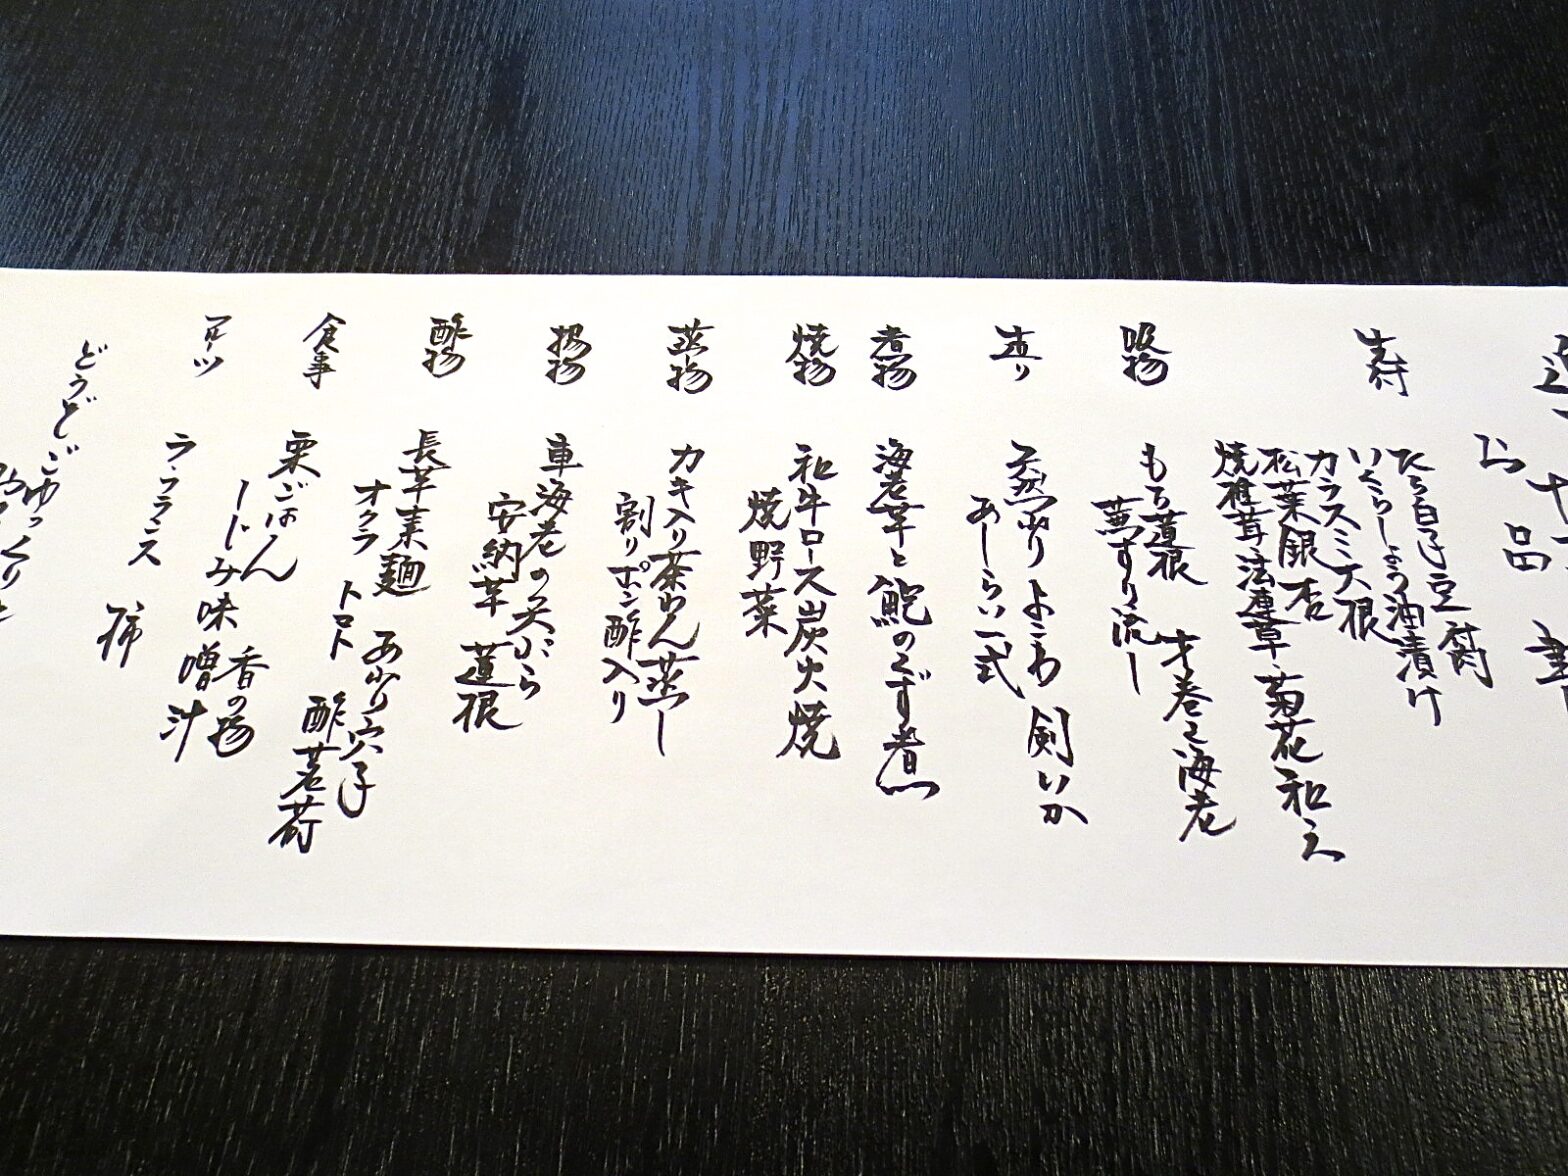 お品書
先付
たら白子豆腐
いくらしょうゆ油漬け
カラスミ大根
松葉銀杏
焼椎茸 法蓮草 菊花和え
吸物
もち蓮根 才巻き海老
蕪すり流し
造り
天然ぶり よこわ 剣いか
あしらい一式
煮物
海老芋と鮑のくず煮
焼物
和牛ロース炭火焼
焼野菜
蒸物
カキ入り茶わん蒸し
割りポン酢入り
揚物
車海老の天ぷら
安納芋 蓮根
酢物
長芋素麺 あぶり穴子
オクラ トマト 酢茗荷
食事
栗ごはん 香の物
しじみ味噌汁
デザート
ラフランス 柿
どうどごゆっくり